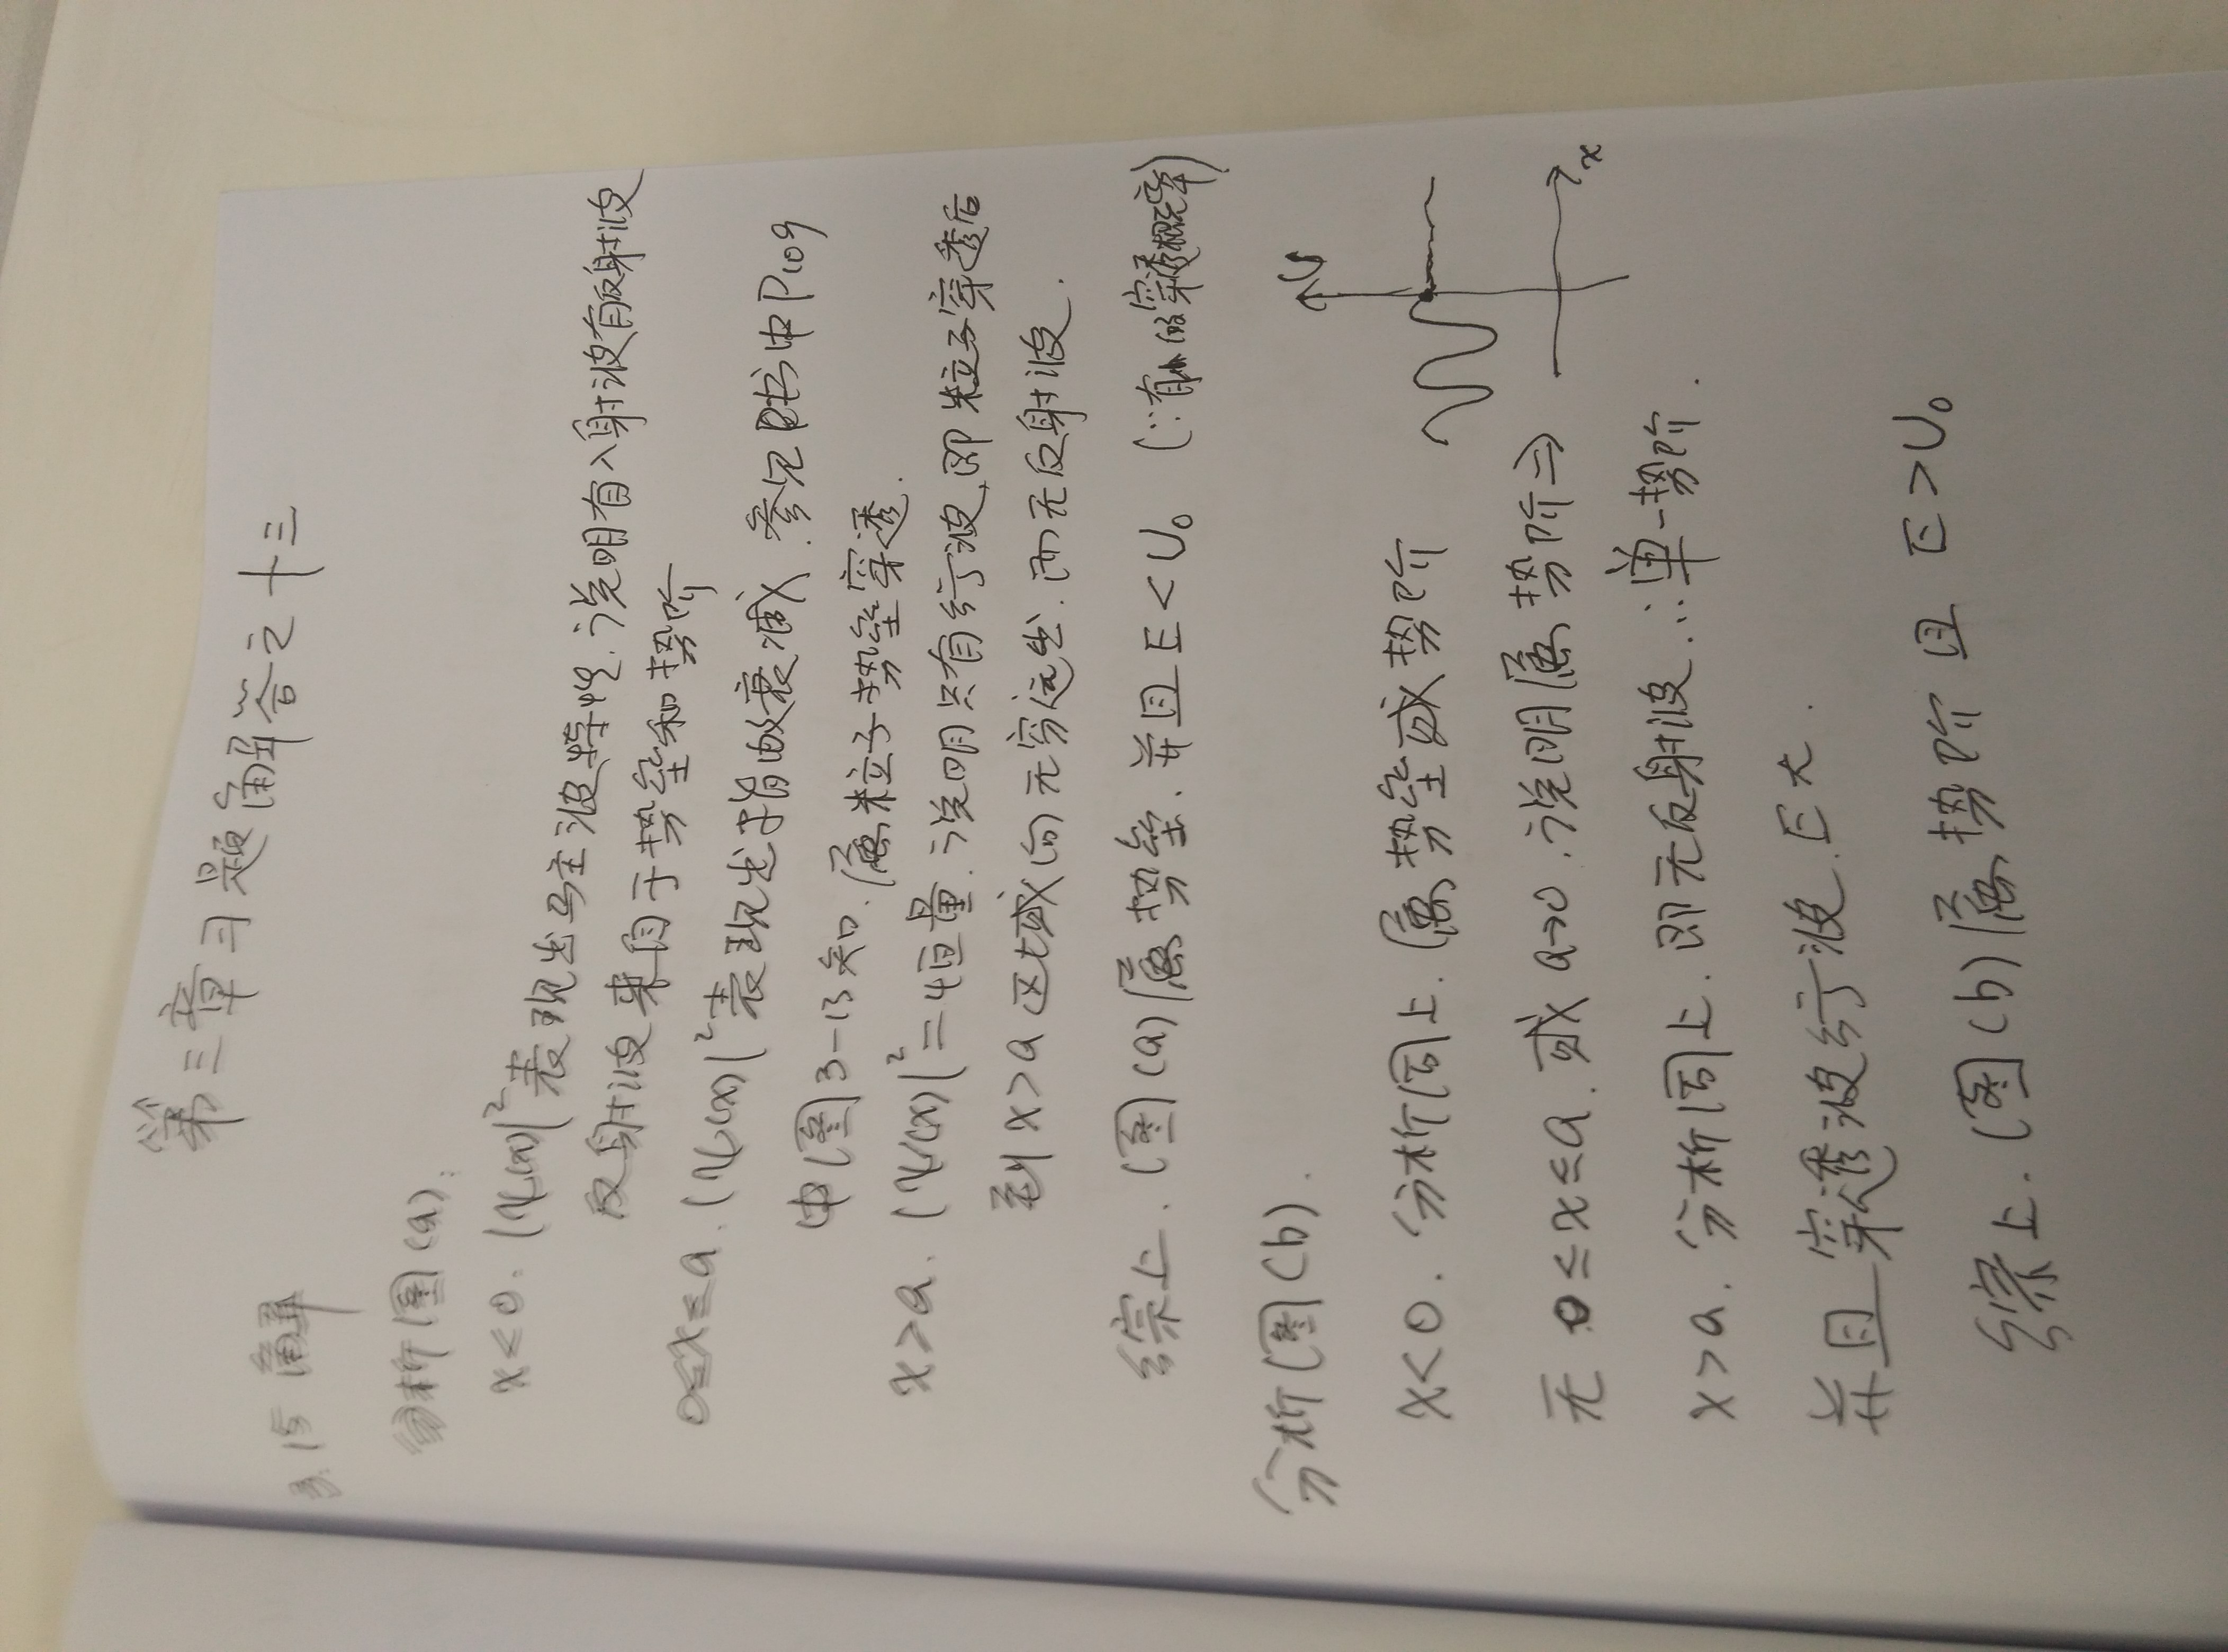 第三章习题解答之十三
3.15 解
分析图(a):
x<0. |ψ(x)|²表现出驻波特性. 说明有入射波有反射波
反射波来自于势垒和势阶
0≤x≤a. |ψ(x)|²表现出指数衰减. 参见书中P109
中图3-13知. 属粒子势垒穿透.
x>a. |ψ(x)|²=恒量. 说明只有行波, 即粒子穿透后
到x>a区域向无穷远出. 而无反射波.
综上. 图(a)属势垒. 并且E<U₀ (∵有的穿透概率)
分析图(b).
x<0. 分析同上. 属势垒或势阶
U
x
无0≤x≤a. 或a→0. 说明属势阶⇒
x>a. 分析同上. 即无反射波. ∴单一势阶.
并且穿透波行波. E大.
综上. 图(b)属势阶且E>U₀